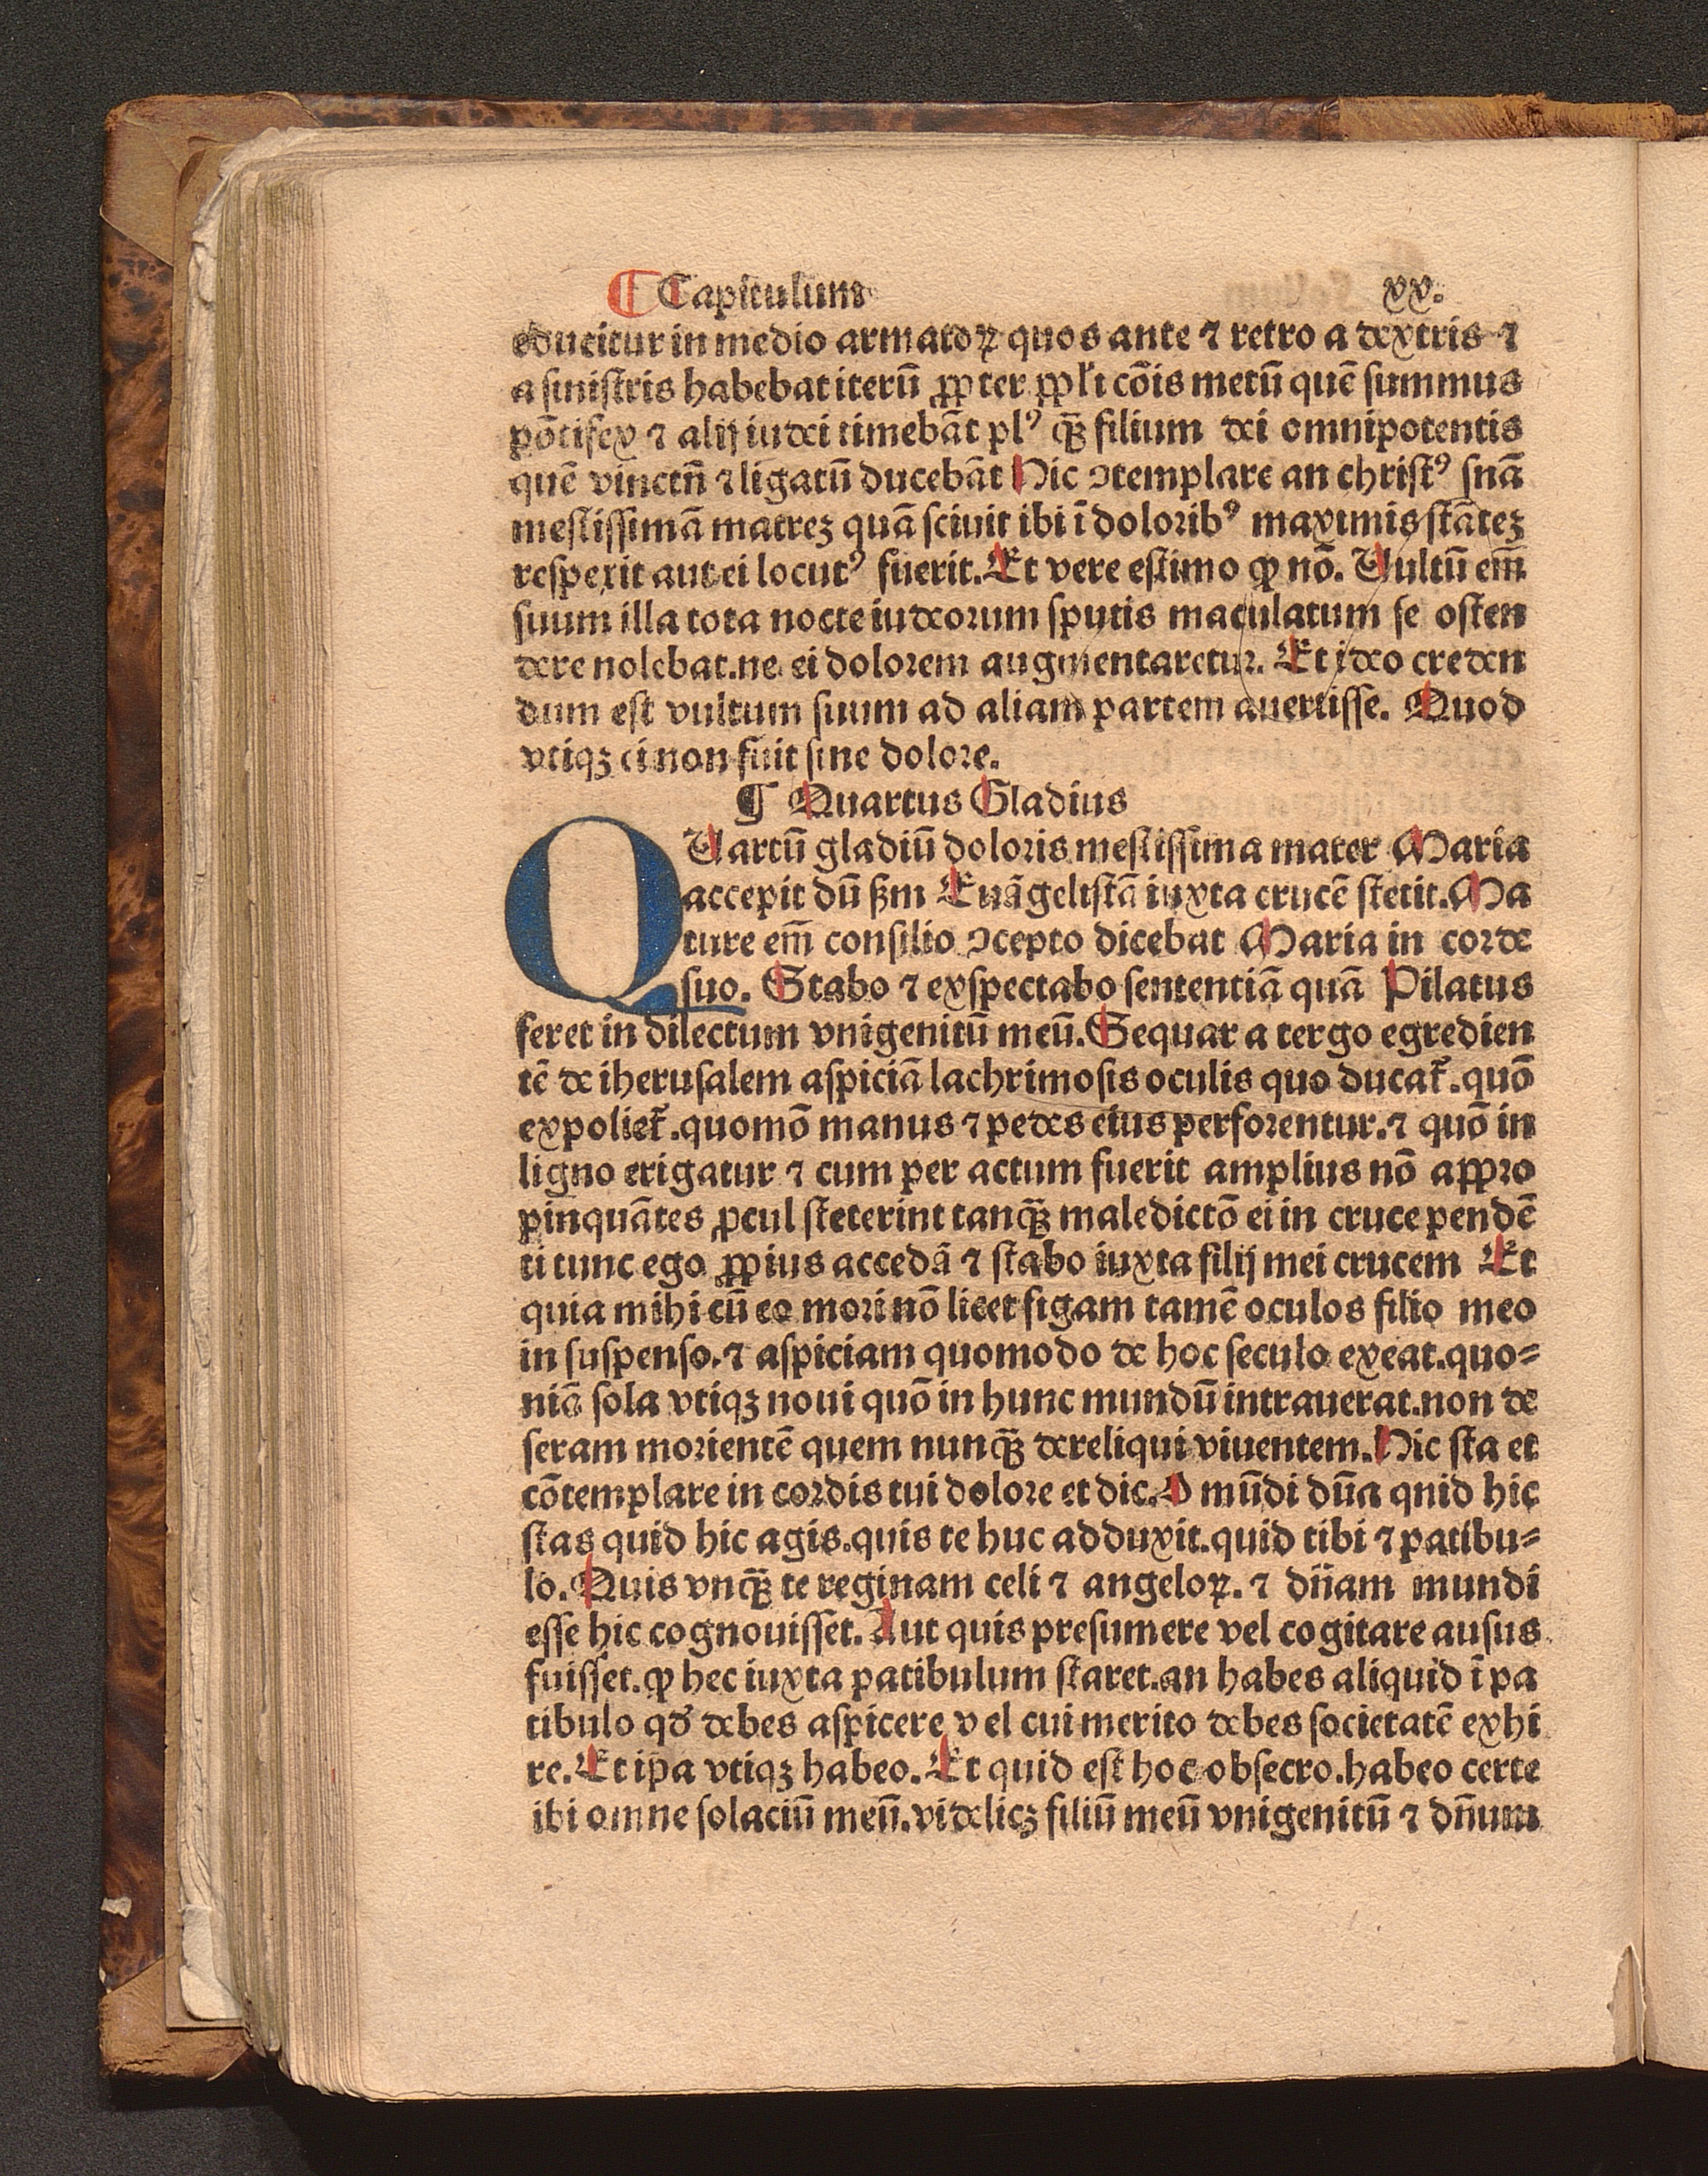 ¶ Capitulum xx.
educitur in medio armatoꝝ quos ante ⁊ retro a dextris ⁊
a sinistris habebat iterū ꝓpter ppl̓i cōis metū quē summus
pōtifex ⁊ alij iudei timebāt plꝰ qȝ̄ filium dei omnipotentis
quē vinctn̄ ⁊ ligatū ducebāt Hic ꝯtemplare an christꝰ snā
mestissimā matreȝ quā sciuit ibi ī doloribꝰ maximis stāteȝ
respexit aut ei locutꝰ fuerit. Et vere estimo ꝙ nō. Uultū em̄
suum illa tota nocte iudeorum sputis maculatum se osten
dere nolebat. ne ei dolorem augmentaretur. Et ideo creden
dum est vultum suum ad aliam partem auertisse. Quod
vtiqȝ ei non fuit sine dolore.
¶ Quartus Gladius
QUartū gladiū doloris mestissima mater Maria
accepit dū ẞm Euāgelistā iuxta crucē stetit. Ma
ture em̄ consilio ꝯcepto dicebat Maria in corde
suo. Stabo ⁊ exspectabo sententiā quā Pilatus
feret in dilectum vnigenitū meū. Sequar a tergo egredien
tē de iherusalem aspiciā lachrimosis oculis quo ducat̄. quō
expoliet̄. quomō manus ⁊ pedes eius perforentur. ⁊ quō in
ligno erigatur ⁊ cum per actum fuerit amplius nō appro
pinquātes ꝓcul steterint tanqȝ̄ maledictō ei in cruce pendē
ti tunc ego ꝓpius accedā ⁊ stabo iuxta filij mei crucem Et
quia mihi cū eo mori nō licet figam tamē oculos filio meo
in suspenso. ⁊ aspiciam quomodo de hoc seculo exeat. quo⸗
niā sola vtiqȝ noui quō in hunc mundū intrauerat. non de
seram morientē quem nunqȝ̄ dereliqui viuentem. Hic sta et
cōtemplare in cordis tui dolore et dic. O mūdi dūa qnid hic
stas quid hic agis. quis te huc adduxit. quid tibi ⁊ patibu⸗
lo. Quis vnqȝ̄ te reginam celi ⁊ angeloꝝ. ⁊ dn̄am mundi
esse hic cognouisset. Aut quis presumere vel cogitare ausus
fuisset. ꝙ hec iuxta patibulum staret. an habes aliquid ī pa
tibulo qđ debes aspicere v el cui merito debes societatē exhi
re. Et ip̄a vtiqȝ habeo. Et quid est hoc obsecro. habeo certe
ibi omne solaciū meū. videlicȝ filiū meū vnigenitū ⁊ dn̄um